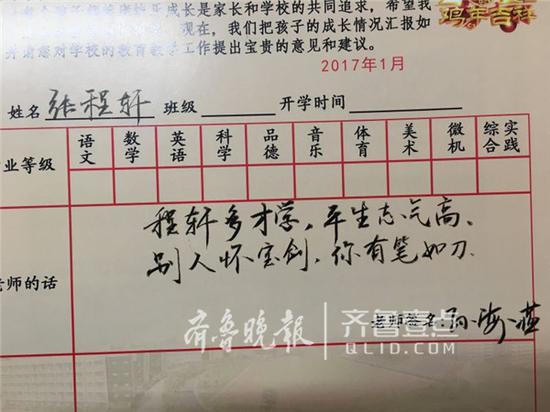 成长是家长和学校的共同追求，希望我
现在，我们把孩子的成长情况汇报如
并请您对学校的教育教学工作提出宝贵的意见和建议。
鸡年吉祥
2017年1月
姓名 张程轩 班级 开学时间
业等级 语文 数学 英语 科学 品德 音乐 体育 美术 微机 综合实践
程轩多才学，平生志气高。
别人怀宝剑，你有笔如刀。
老师的话
老师签名：
海燕
齐鲁晚报 齐鲁壹点
QLID.COM